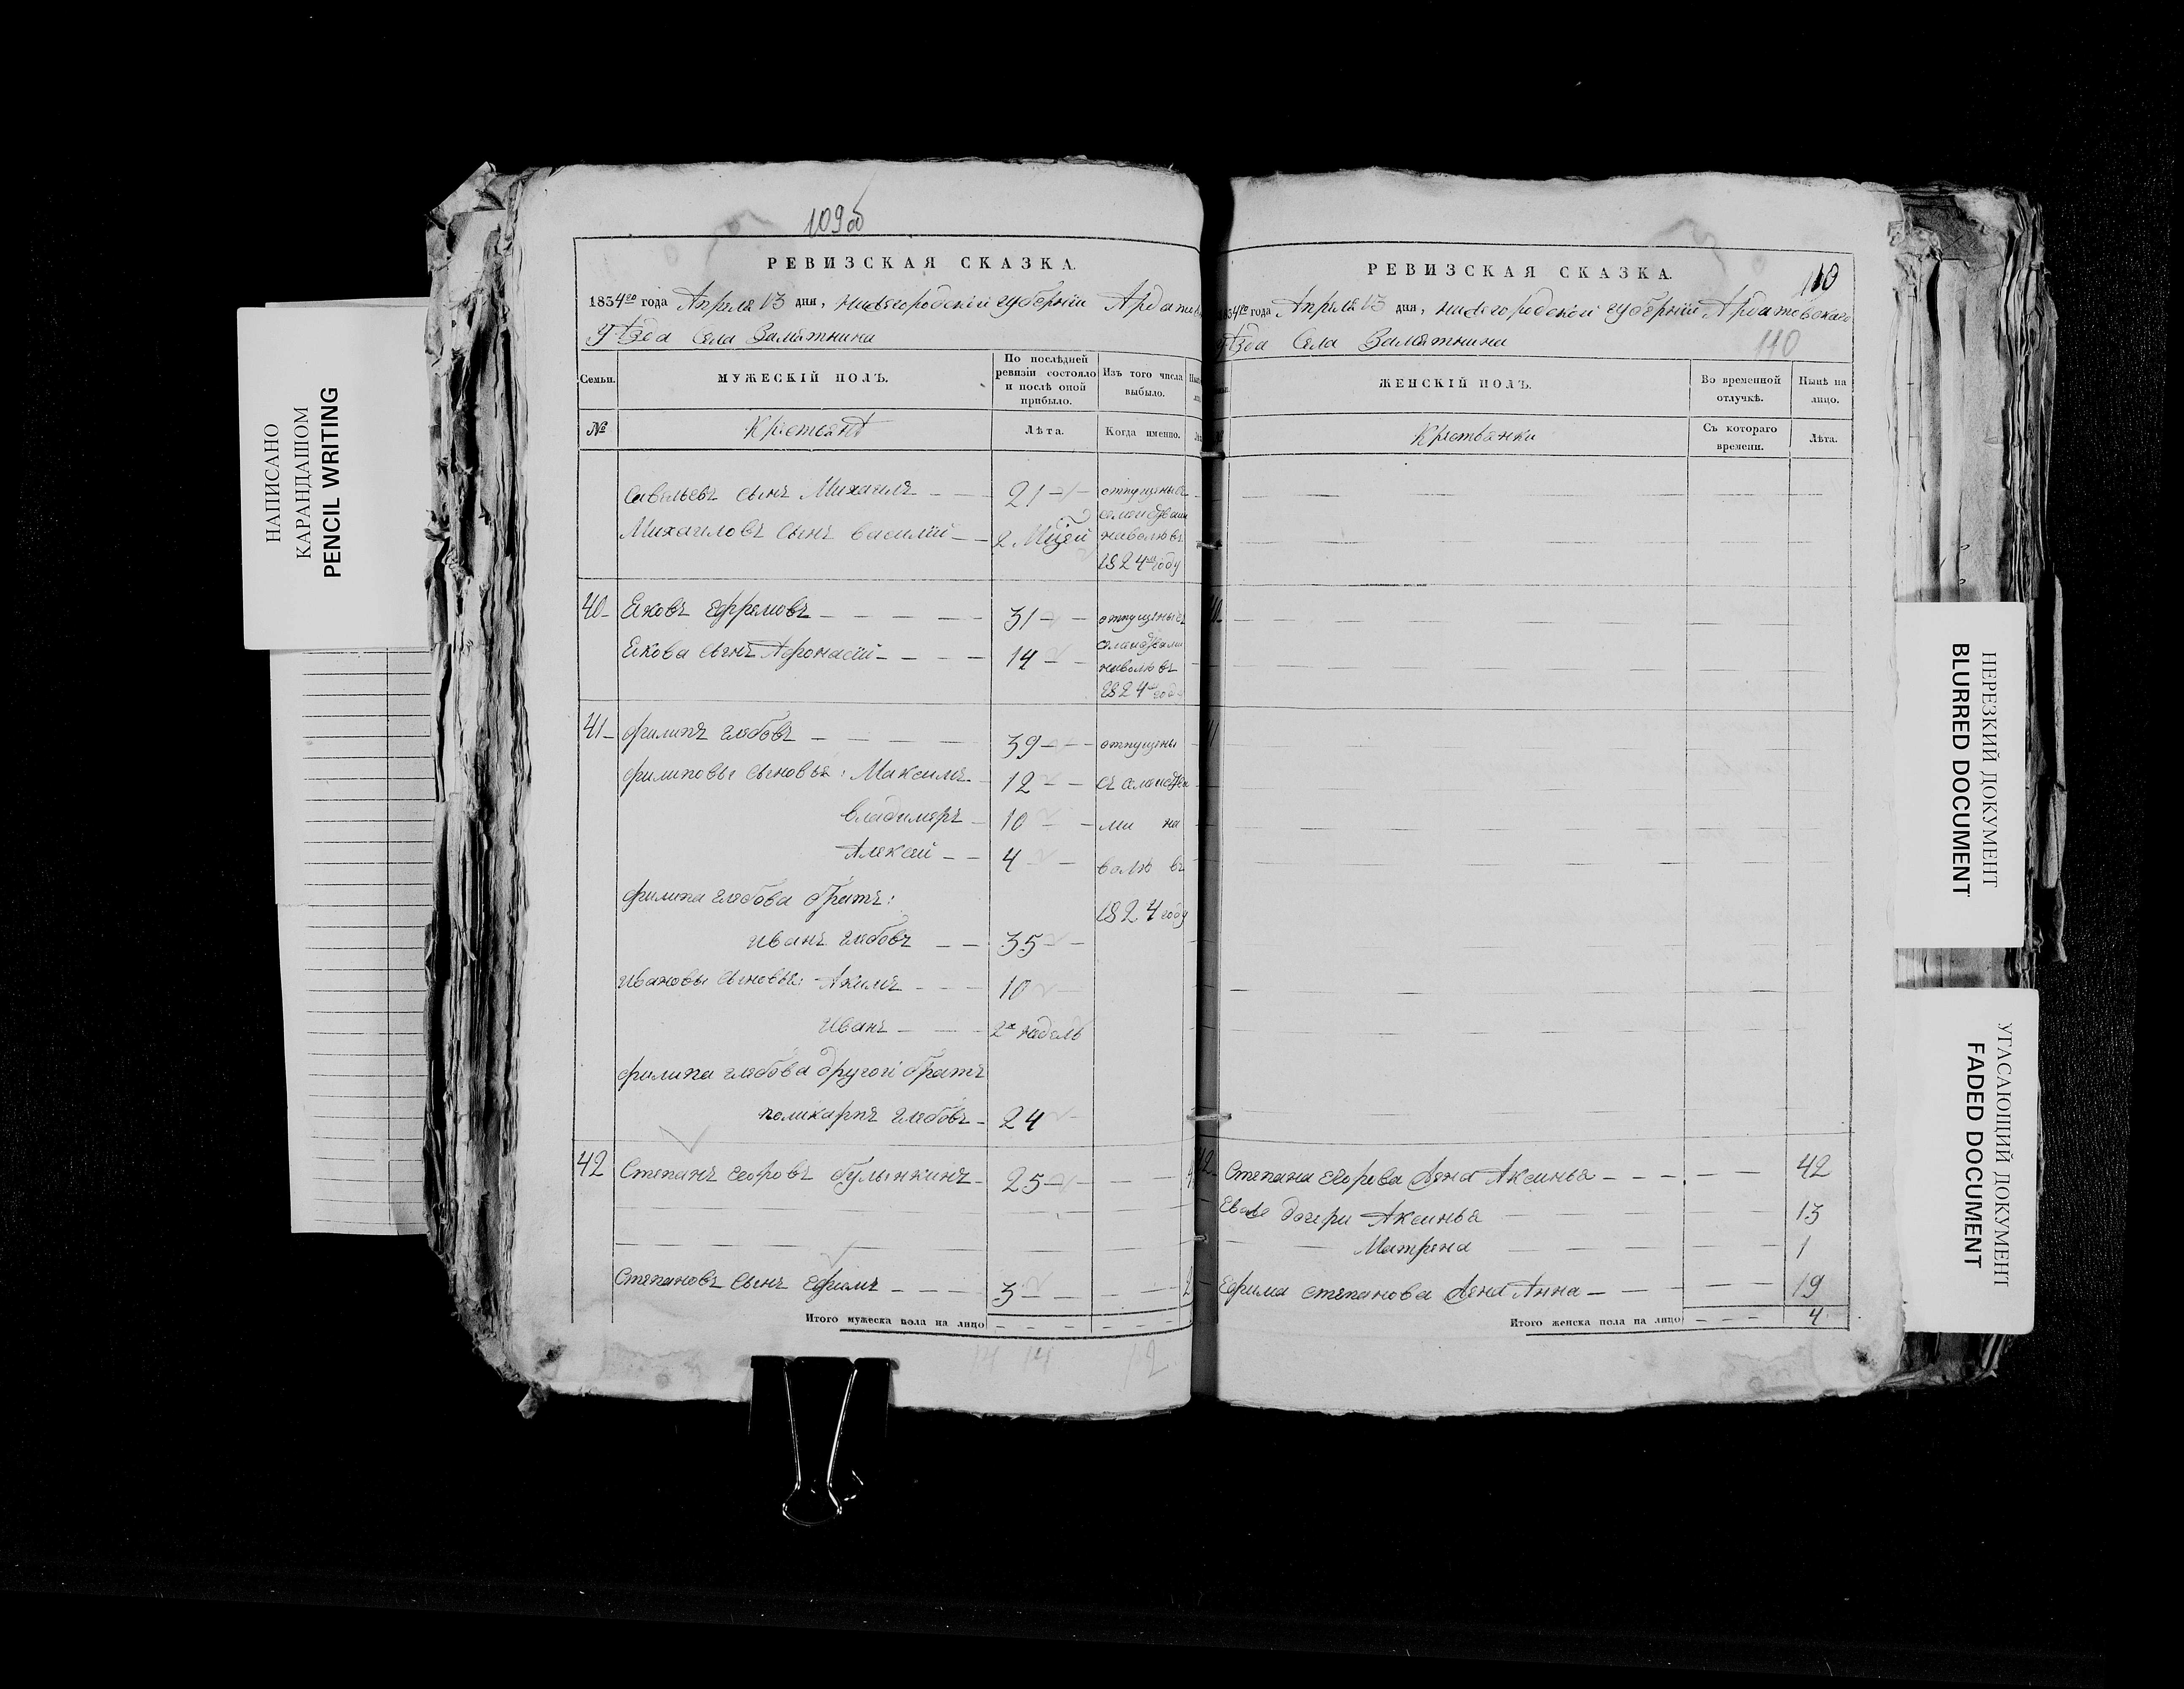 НАПИСАНО
КАРАНДАШОМ
PENCIL WRITING
109об
РЕВИЗСКАЯ СКАЗКА.
1834го года Апреля 13 дня, нижегородскiй губернiи Ардатов
уѣзда Села Замятнина
Семьи.
МУЖЕСКІЙ ПОЛЪ.
По послѣдней
ревизіи состояло
и послѣ оной
прибыло.
Изъ того числа
выбыло.
№
Крестьянъ
Лѣта.
Когда именно.
Савельевъ сынъ Михаилъ 21 отпущены съ
Михаиловъ сынъ василiй 2. Мцей
наволю въ
1824м году
40 Ековъ ефремовъ 31 отпущены съ
Екова сынъ Афонасiй 14
наволю въ
1824м году
41 филипъ глебовъ 39 отпущены
филиповы сыновья: Максимъ 12
владимеръ 10 ми на
Алексей 4 волю въ
филипа глебова братъ: 1824 году
иванъ глебовъ 35
ивановы сыновья: Акимъ 10
иванъ 2х недель
филипа глебова другои братъ
поликарпъ глебовъ 24
42 Степанъ егоровъ булынкинъ 25
Степановъ сынъ ефимъ 3
Итого мужеска пола на лицо
14 14 12
РЕВИЗСКАЯ СКАЗКА.
110
1834го года Апреля 13 дня, нижегородскои губернiи Ардатовскаго
уѣзда Села Замятнина
110
ЖЕНСКІЙ ПОЛЪ.
Во временной
отлучкѣ.
Нынѣ на
лицо.
Крестьянки
Съ котораго
времени.
Лѣта.
40
41
42 Степана егорова жена Аксинья 42
Ево дочери Аксинья 13
Матрена 1
ефима степанова жена Анна 19
Итого женска пола на лицо 4
НЕРЕЗКИЙ ДОКУМЕНТ
BLURRED DOCUMENT
УГАСАЮЩИЙ ДОКУМЕНТ
FADED DOCUMENT